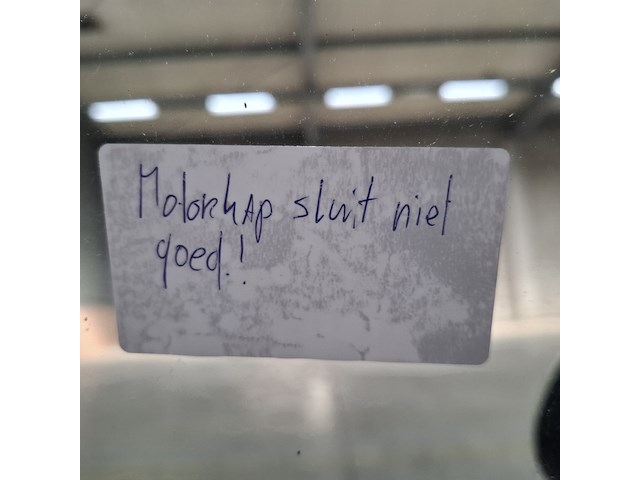 Motorkap sluit niet
goed!